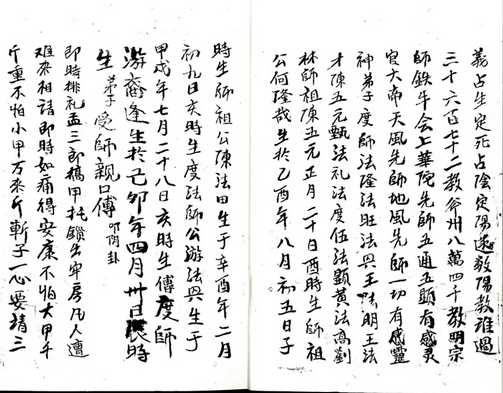 義占生定死占陰定陽遠教陽教雅過
三十六百七十二教谷州八萬四千教明宗
師鉄牛会上華院先師五通五顕有感灵
官大帝天風先師地風先師一切有感靈
神弟子度師法隆法旺法興王法明王法
才陳五元甄法礼法度伍法顕黄法高劉
林師祖陳五元正月二十日酉時生師祖
公何隆哉生於乙酉年八月初五日子
時生師祖公陳法田生于辛酉年二月
初九日亥時生度法師公游法興生于
甲戌年七月二十八日亥時生傳度師
游裔逢生於己卯年四月卅日辰時
生 弟子受師親口傳 叩陰卦
即時排礼孟三郎槁甲托鎖出牢房凡人遭
难來相請即時如痛得安康不怕大甲千
斤重不怕小甲万來斤斬子一心要請三